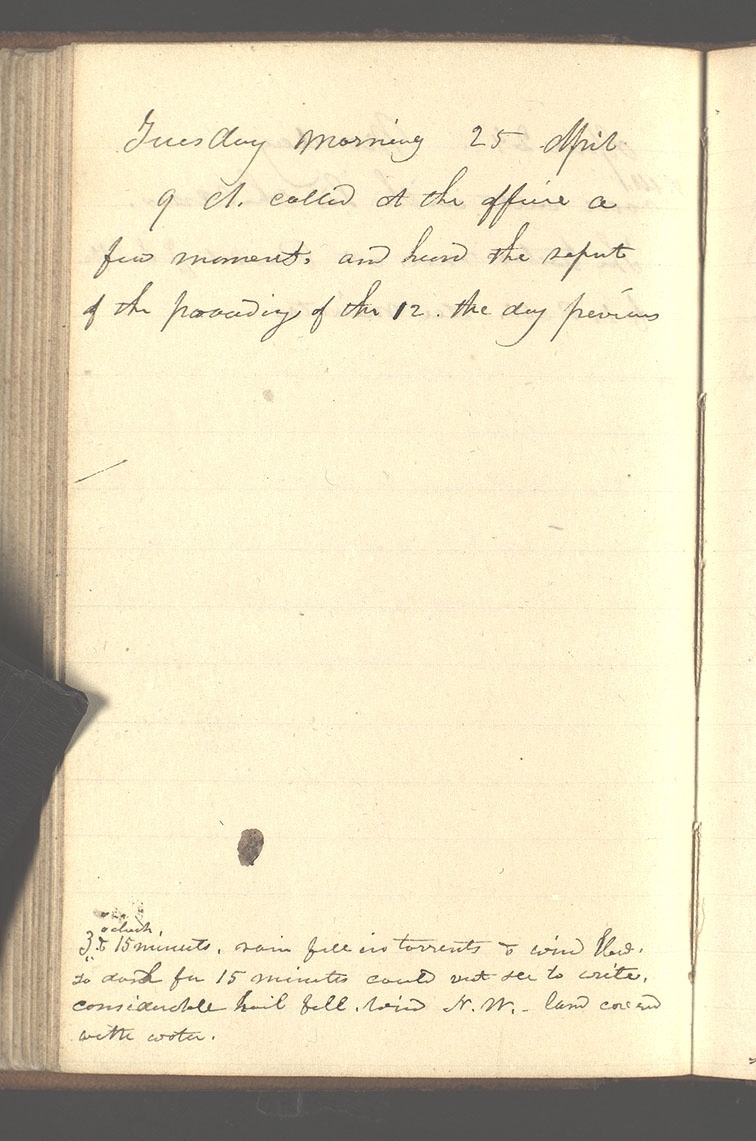 Tuesday morning 25 April
9 cl. called at the office a
few moments. and heard the report
of the proceedings of the 12. the day previous
oclock
3 & 15 minuts, rain fell in torrents & wind blew.
so dark for 15 minutes could not see to write.
considerable hail fell. wind N. W. - land covered
with water.